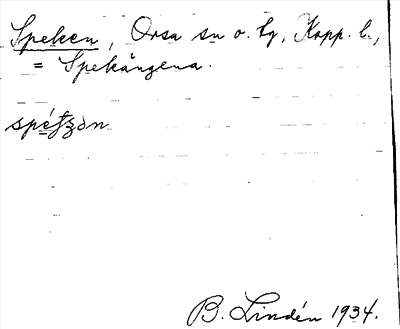 Speken, Orsa sn o. tg, Kopp. l.,
= Spekängena.
B. Lindén 1934.